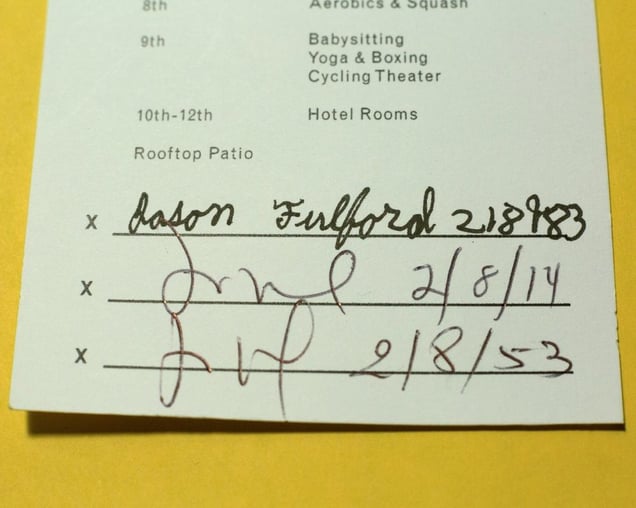 8th Aerobics & Squash
9th Babysitting
Yoga & Boxing
Cycling Theater
10th-12th Hotel Rooms
Rooftop Patio
x Jason Fulford 2/8/83
x 2/8/14
x 2/8/53